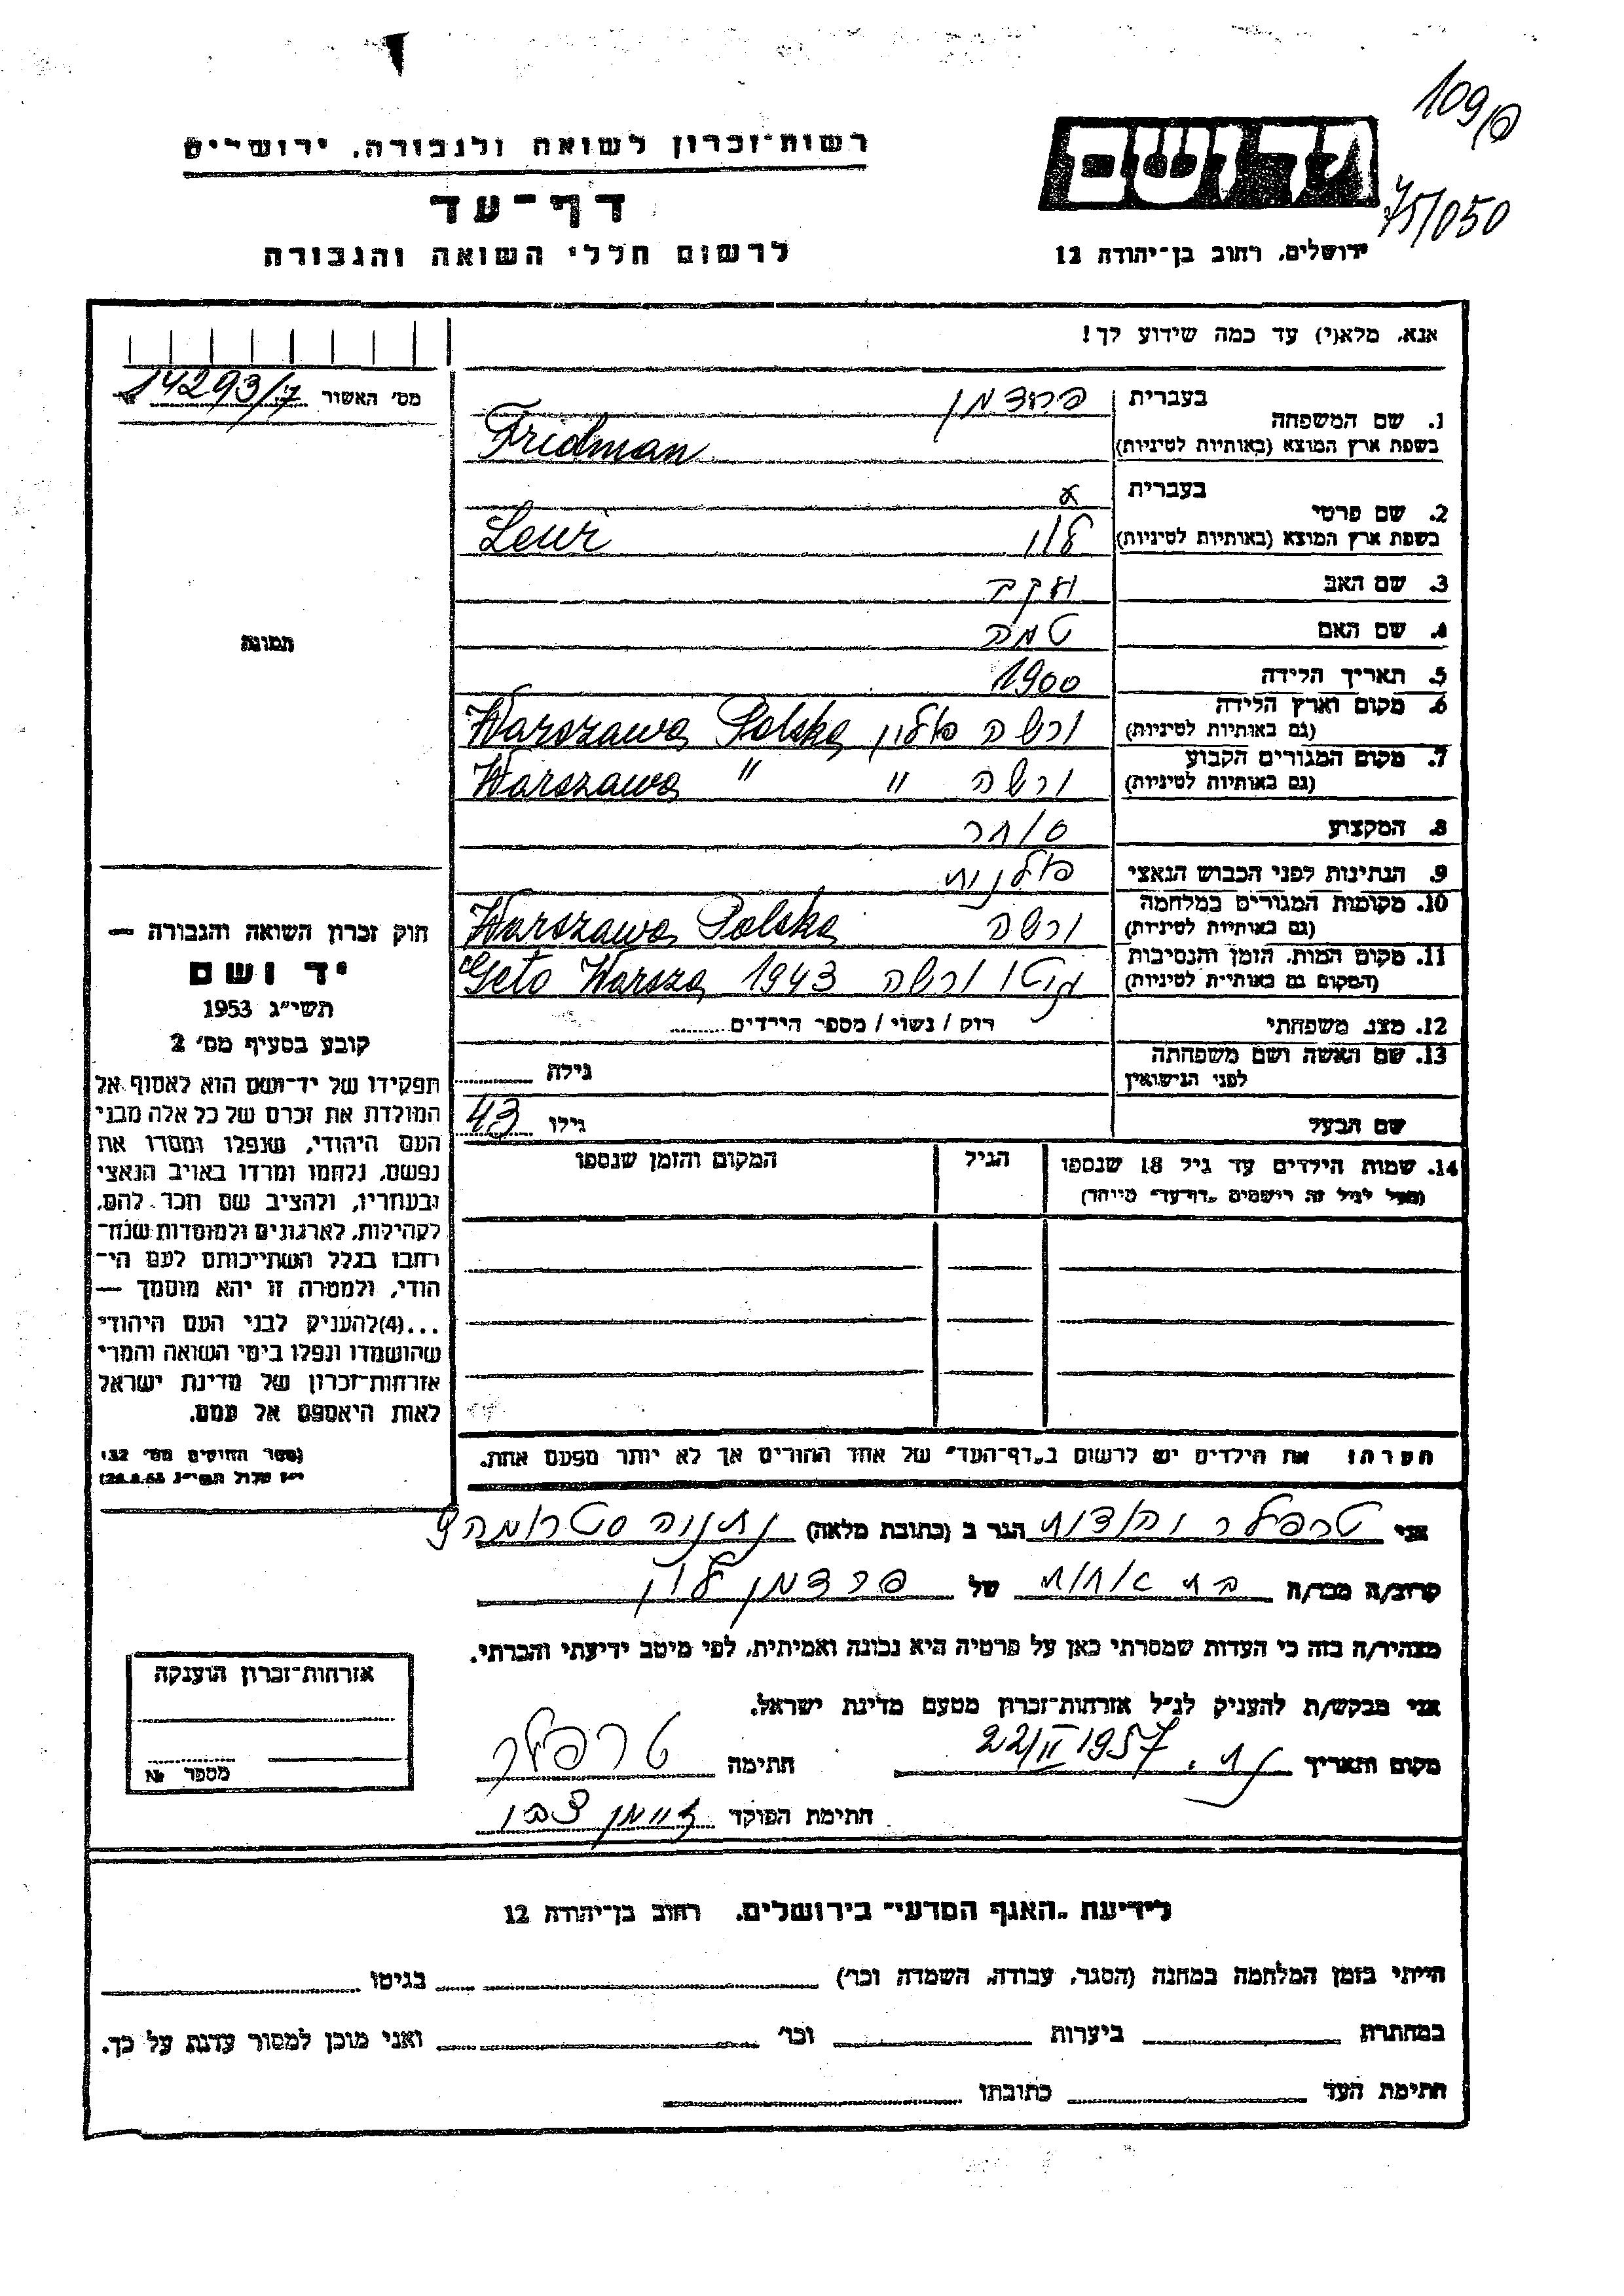 109/פ
75/050
ידושם
ירושלים, רחוב בן־יהודה 12
רשות־זכרון לשואה ולגבורה, ירושלים
דף־עד
לרשום חללי השואה והגבורה
אנא, מלא(י) עד כמה שידוע לך!
מס׳ האשור 14293/7 №
1. שם המשפחה בעברית פרידמן
בשפת ארץ המוצא (באותיות לטיניות) Fridman
2. שם פרטי בעברית
בשפת ארץ המוצא (באותיות לטיניות) לוי Lewi
3. שם האב יעקב
4. שם האם טמה
5. תאריך הלידה 1900
6. מקום וארץ הלידה (גם באותיות לטיניות) ורשה פולין Warszawa Polska
7. מקום המגורים הקבוע (גם באותיות לטיניות) ורשה " Warszawa "
8. המקצוע סוחר
9. הנתינות לפני הכבוש הנאצי פולנית
10. מקומות המגורים במלחמה (גם באותיות לטיניות) ורשה Warszawa Polska
11. מקום המות, הזמן והנסיבות (המקום גם באותיות לטיניות) גיטו ורשה 1943 Geto Warsza
12. מצב משפחתי רוק / נשוי / מספר הילדים
13. שם האשה ושם משפחתה לפני הנישואין גילה
שם הבעל גילו 43
14. שמות הילדים עד גיל 18 שנספו הגיל המקום והזמן שנספו
(מעל לגיל זה רושמים „דף־עד״ מיוחד)
הערה: את הילדים יש לרשום ב„דף־העד״ של אחד ההורים אך לא יותר מפעם אחת.
תמונה
חוק זכרון השואה והגבורה —
יד ושם
תשי״ג 1953
קובע בסעיף מס׳ 2
תפקידו של יד־ושם הוא לאסוף אל
המולדת את זכרם של כל אלה מבני
העם היהודי, שנפלו ומסרו את
נפשם, נלחמו ומרדו באויב הנאצי
ובעוזריו, ולהציב שם וזכר להם,
לקהילות, לארגונים ולמוסדות שנח־
רבו בגלל השתייכותם לעם הי־
הודי, ולמטרה זו יהא מוסמך —
...(4)להעניק לבני העם היהודי
שהושמדו ונפלו בימי השואה והמרי
אזרחות־זכרון של מדינת ישראל
לאות היאספם אל עמם.
(ספר החוקים מס׳ 132,
י״ז אלול תשי״ג 28.8.53)
אני טרפלר יהודית הגר ב (כתובת מלאה) נתניה
קרוב/ה מכר/ה בת אחות של פרידמן לוי
מצהיר/ה בזה כי העדות שמסרתי כאן על פרטיה היא נכונה ואמיתית, לפי מיטב ידיעתי והכרתי.
אני מבקש/ת להעניק לנ״ל אזרחות־זכרון מטעם מדינת ישראל.
מקום ותאריך נת. 22/II 1957 חתימה טרפלר
חתימת הפוקד
אזרחות־זכרון הוענקה
מספר №
לידיעת „האגף המדעי״ בירושלים, רחוב בן־יהודה 12
הייתי בזמן המלחמה במחנה (הסגר, עבודה, השמדה וכו׳) בגיטו
במחתרת ביערות וכו׳ ואני מוכן למסור עדות על כך.
חתימת העד כתובתו